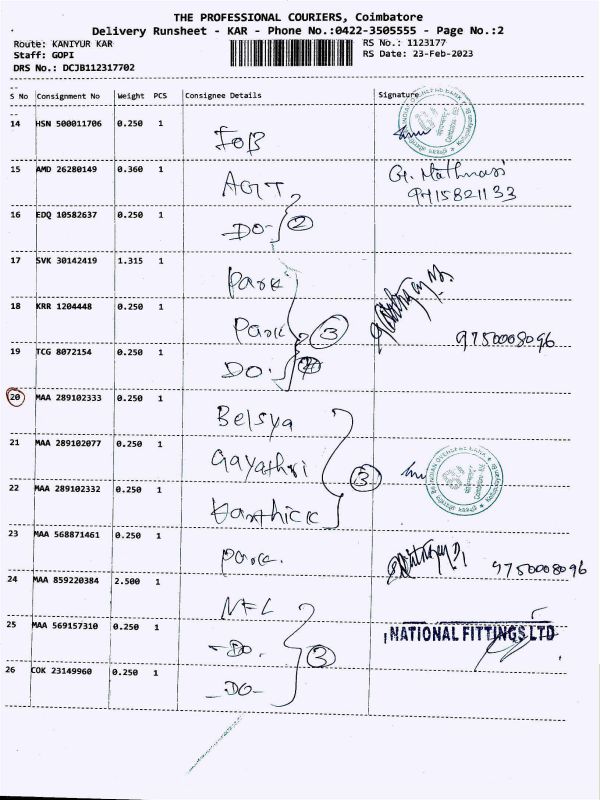 THE PROFESSIONAL COURIERS, Coimbatore
Delivery Runsheet - KAR - Phone No.:0422-3505555 - Page No.:2
Route: KANIYUR KAR RS No.: 1123177
Staff: GOPI RS Date: 23-Feb-2023
DRS No.: DCJB112317702
S No Consignment No Weight PCS Consignee Details Signature
14 HSN 500011706 0.250 1 IOB
15 AMD 26280149 0.360 1 AGT G. Mathurasi
9715821133
16 EDQ 10582637 0.250 1 -DO- 2
17 SVK 30142419 1.315 1 Park
18 KRR 1204448 0.250 1 Park 3 9750008096
19 TCG 8072154 0.250 1 DO.
20 MAA 289102333 0.250 1 Belsya
21 MAA 289102077 0.250 1 Gayathri 3
22 MAA 289102332 0.250 1 Karthick
23 MAA 568871461 0.250 1 Park. 9750008096
24 MAA 859220384 2.500 1 NFL
25 MAA 569157310 0.250 1 -DO. 3 NATIONAL FITTINGS LTD
26 COK 23149960 0.250 1 -DO-